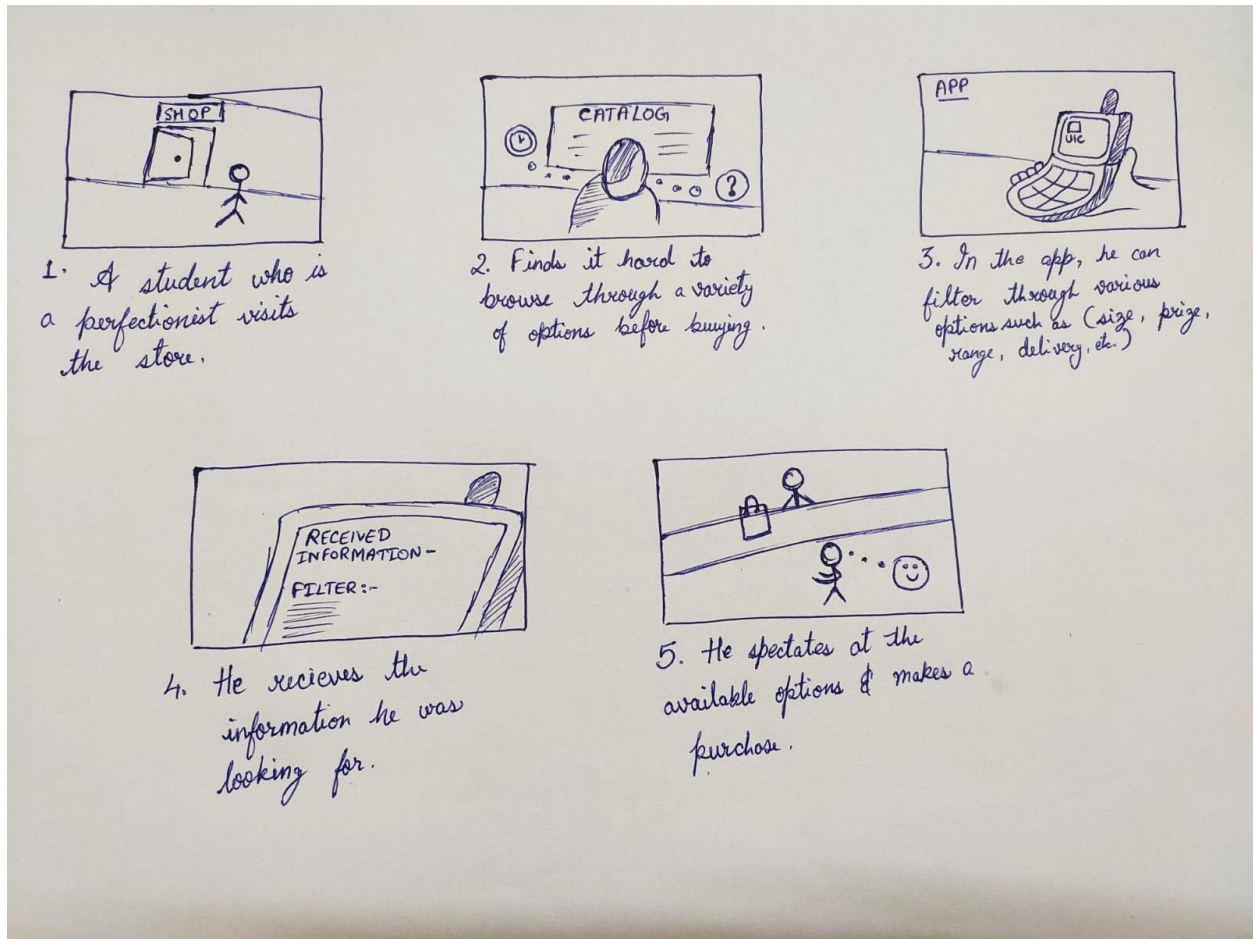 SHOP
1. A student who is
a perfectionist visits
the store.
CATALOG
?
2. Finds it hard to
browse through a variety
of options before buying.
APP
UIC
3. In the app, he can
filter through various
options such as (size, prize,
range, delivery, etc.)
RECEIVED
INFORMATION-
FILTER:-
4. He recieves the
information he was
looking for.
5. He spectates at the
available options & makes a
purchase.